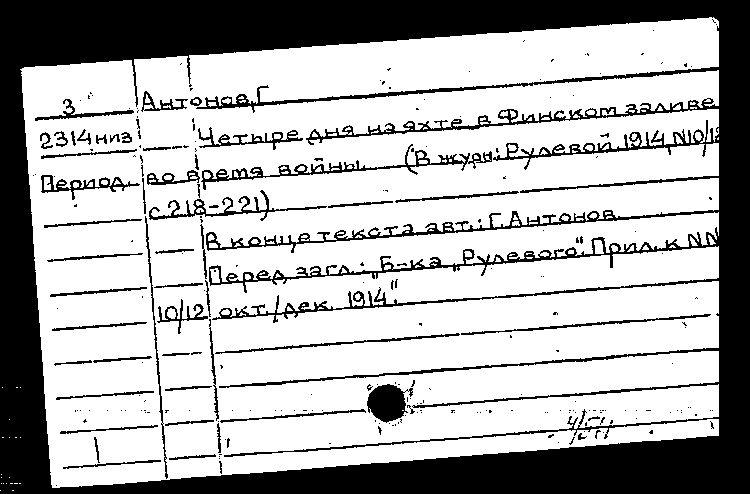 3 Антонов, Г
2314 низ Четыре дня на яхте в Финском заливе
Период. во время войны. (В журн: Рулевой. 1914, N10/12
с. 218-221).
В конце текста авт.: Г. Антонов.
Перед загл.: „Б-ка „Рулевого". Прил. к NN
10/12 окт./дек. 1914".